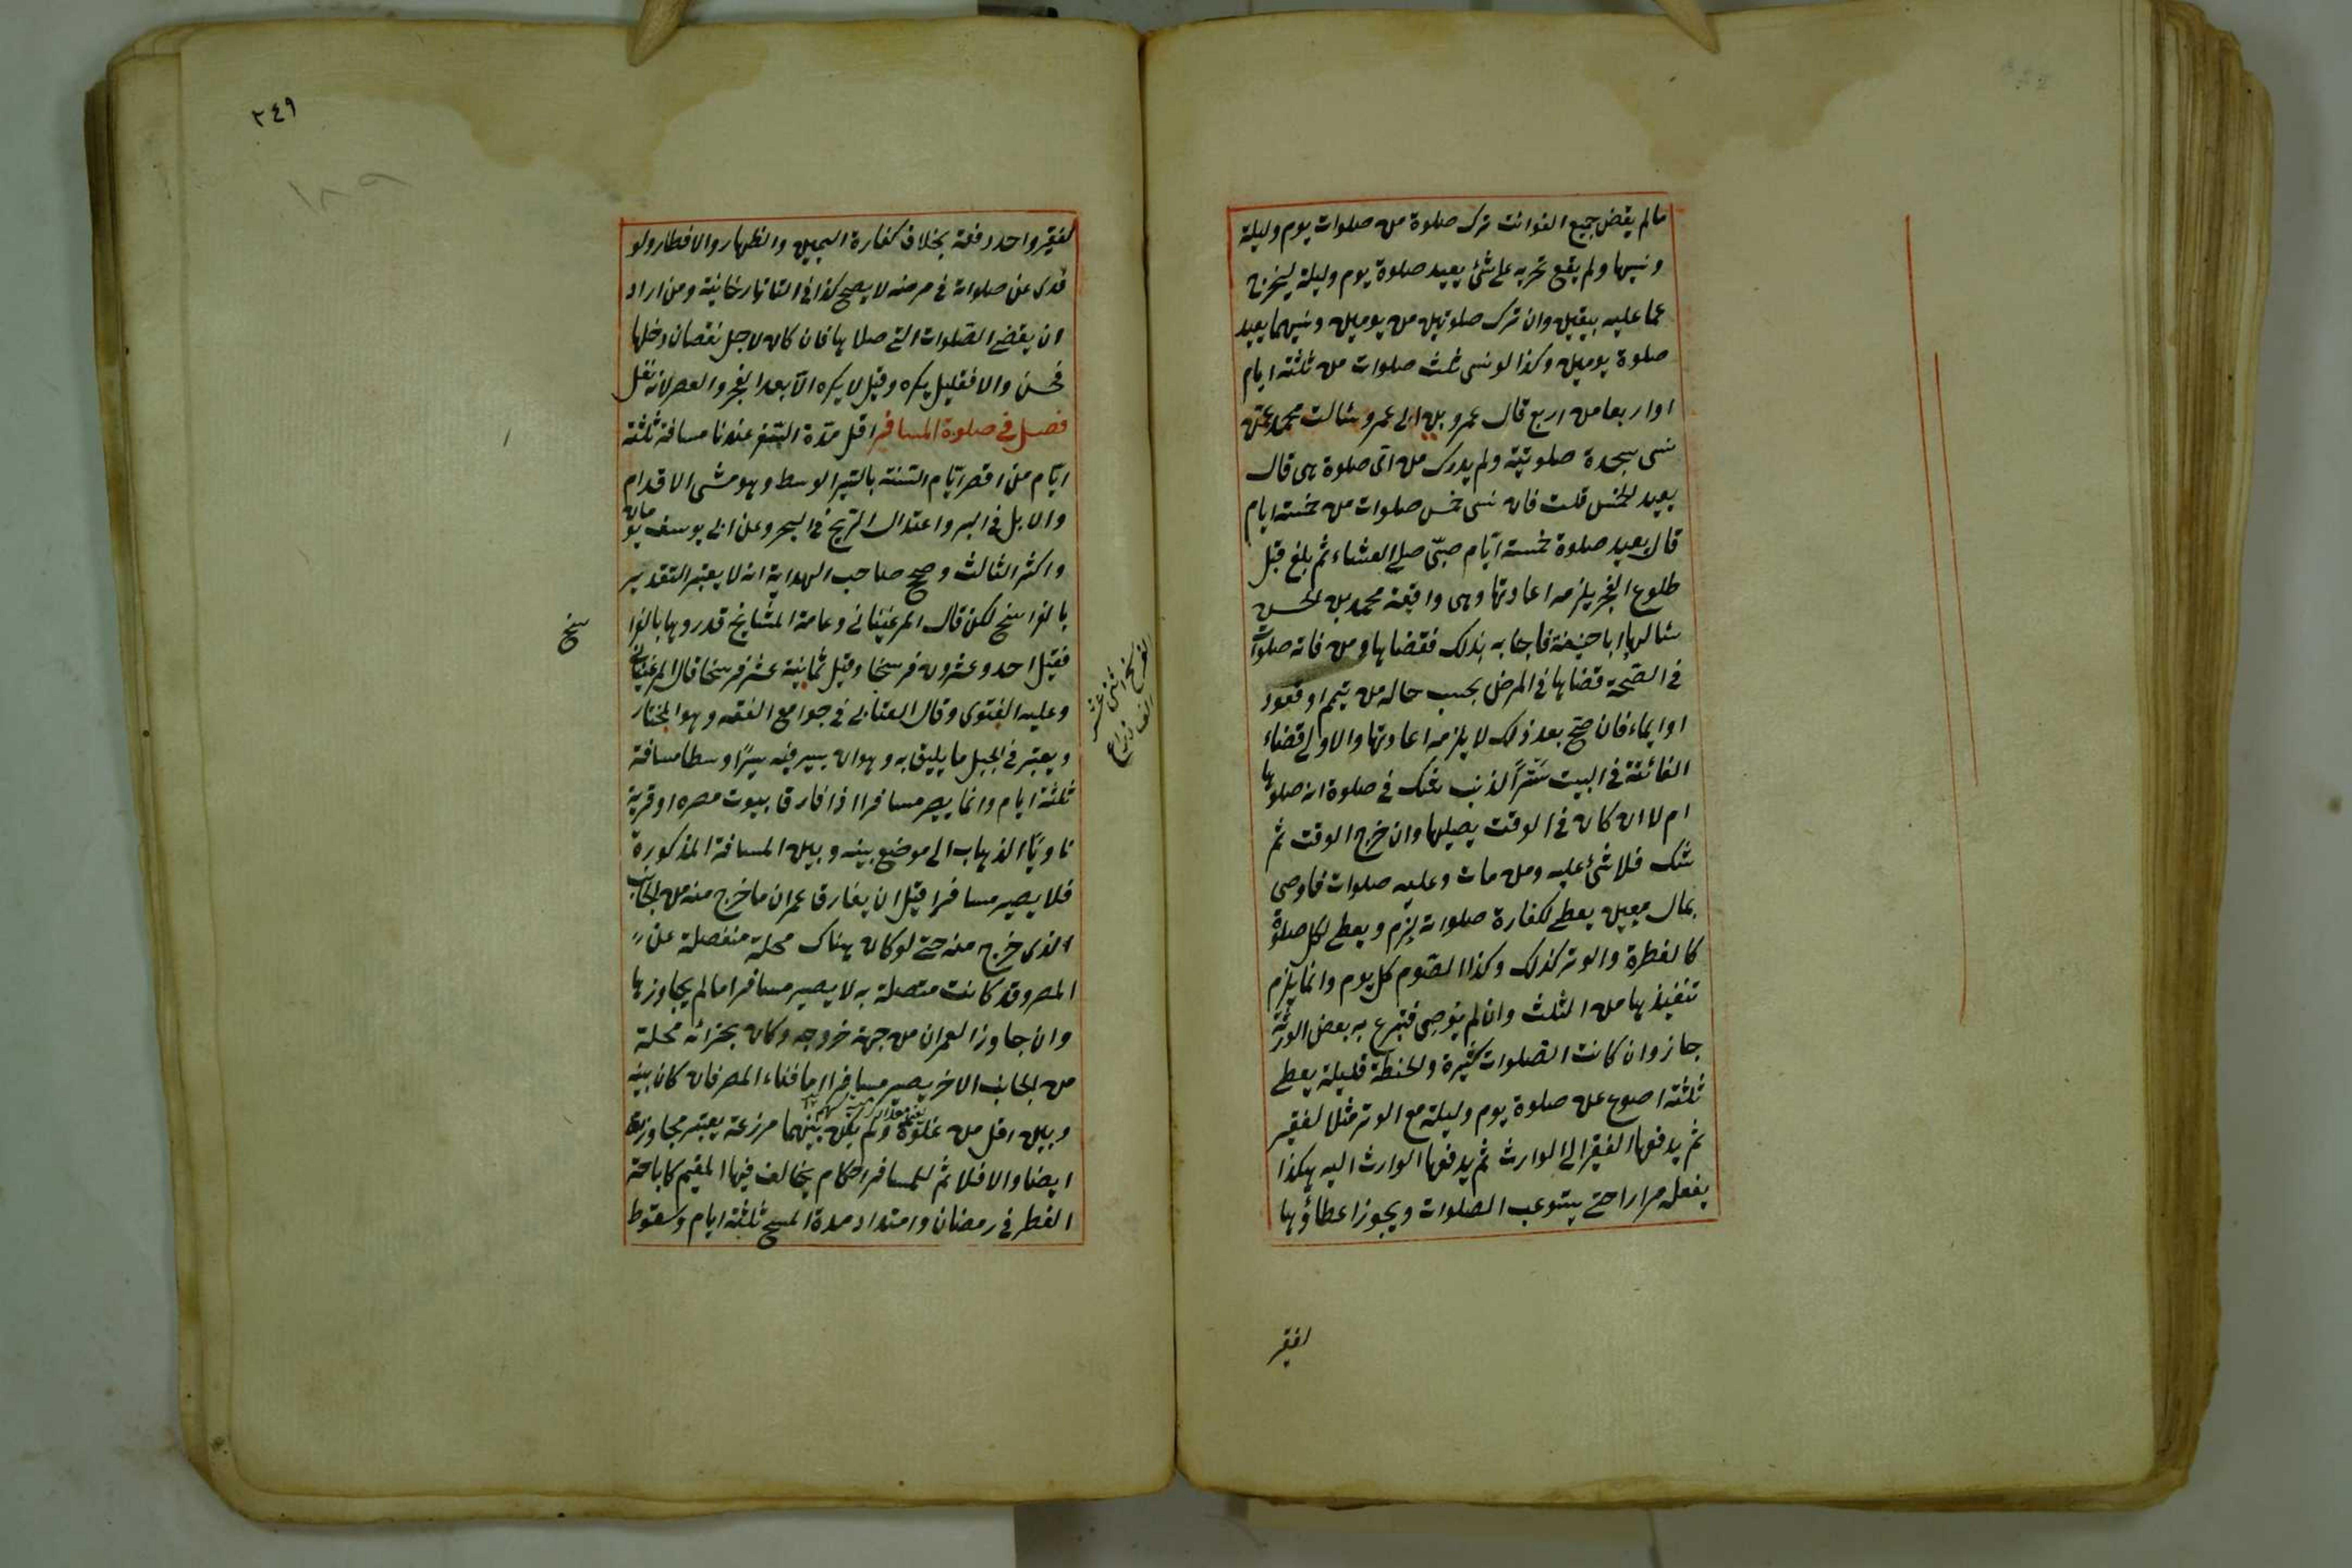 مالم يقض جميع الفوائت ترك صلوة من صلوات يوم وليلة
ونسيها ولم يقع تحريه على شئ يعيد صلوة يوم وليلة ليخرج
عما عليه بيقين وان ترك صلوتين من يومين ونسيهما يعيد
صلوة يومين وكذا لو نسى ثلث صلوات من ثلثة ايام
او اربعا من اربع قال عمرو بن ابى عمرو سئالت محمد عمّن
نسى سجدة صلوتية ولم يدرك من اىّ صلوة هى قال
يعيد الخمس قلت فان نسى خمس صلوات من خمسة ايام
قال يعيد صلوة خمسة ايّام صبىّ صلى العشاء ثم بلغ قبل
طلوع الفجر يلزمه اعادتها وهى واقعة محمد بن الحسن
سئالها اباحنيفة فاجابه بذلك فقضاها ومن فاته صلوات
فى الصّحة قضاها فى المرض بحسب حاله من تيمم او قعود
او ايماء فان صحّ بعد ذلك لا يلزمه اعادتها والاولى قضاء
الفائتة فى البيت ستراً لذنب شك فى صلوة انه صلوها
ام لا ان كان فى الوقت يصليها وان خرج الوقت ثم
شك فلا شئ عليه ومن مات وعليه صلوات فاوصى
بمال معين يعطى لكفارة صلواته لزم ويعطى لكل صلوة
كالفطرة والوتر كذلك وكذا الصّوم كل يوم وانما يلزم
تنفيذها من الثلث وان لم يوصى فتبرع به بعض الورثة
جاز وان كانت الصلوات كثيرة والحنطة قليلة يعطى
ثلثة اصوع عن صلوة يوم وليلة مع الوتر مثلا لفقير
ثم يدفعها الفقير الى الوارث ثم يدفعها الوارث اليه هكذا
يفعل مرارا حتى يستوعب الصلوات ويجوز اعطاؤها
لفقير
٢٤٩
لفقير واحد دفعة بخلاف كفارة اليمين والظهار والافطار ولو
فدى عن صلواته فى مرضه لا يصح كذا فى التاتارخانية ومن اراد
ان يقضى الصّلوات التى صلاها فان كان لاجل نقصان دخلها
فحسن والا فقيل يكره وقيل لا يكره الّا بعد الفجر والعصر لانه نفل
فصل فى صلوة المسافر اقل مدّة السّفر عندنا مسافة ثلثة
ايّام من اقصر ايّام السّنة بالسّير الوسط وهو مشى الاقدام
والابل فى البر واعتدال الرّيح فى البحر وعن ابى يوسف يومان
واكثر الثالث وصحح صاحب الهداية انه لا يعتبر التقدير
بالفراسخ لكن قال المرغينانى وعامة المشايخ قدروها بالفرا
سخ
فقيل احد وعشرون فرسخا وقيل ثمانية عشر فرسخا قال المرغينانى
وعليه الفتوى وقال العتابى فى جوامع الفقه وهو المختار
الفرسخ اثنى عشر
الف ذراع
ويعتبر فى الجبل ما يليق به وهو ان يسير فيه سيرًا وسطا مسافة
ثلثة ايام وانما يصير مسافرا اذا فارق بيوت مصره او قرية
ناويًا الذهاب الى موضع بينه وبين المسافة المذكورة
فلا يصير مسافرا قبل ان يفارق عمران ما خرج منه من الجانب
الذى خرج منه حتى لو كان هناك محلة منفصلة عن
المصر وقد كانت متصلة به لا يصير مسافرا مالم يجاوزها
وان جاوز العمران من جهة خروجه وكان بحذائه محلة
من الجانب الاخر يصير مسافرا اما فناء المصر فان كان بينه
وبين اقل من غلوة ولم يكن بينهما مزرعة يعتبر مجاوزته
ايضا والا فلا ثم للمسافر احكام يخالف فيها المقيم كاباحة
الفطر فى رمضان وامتداد مدة المسح ثلثة ايام وسقوط